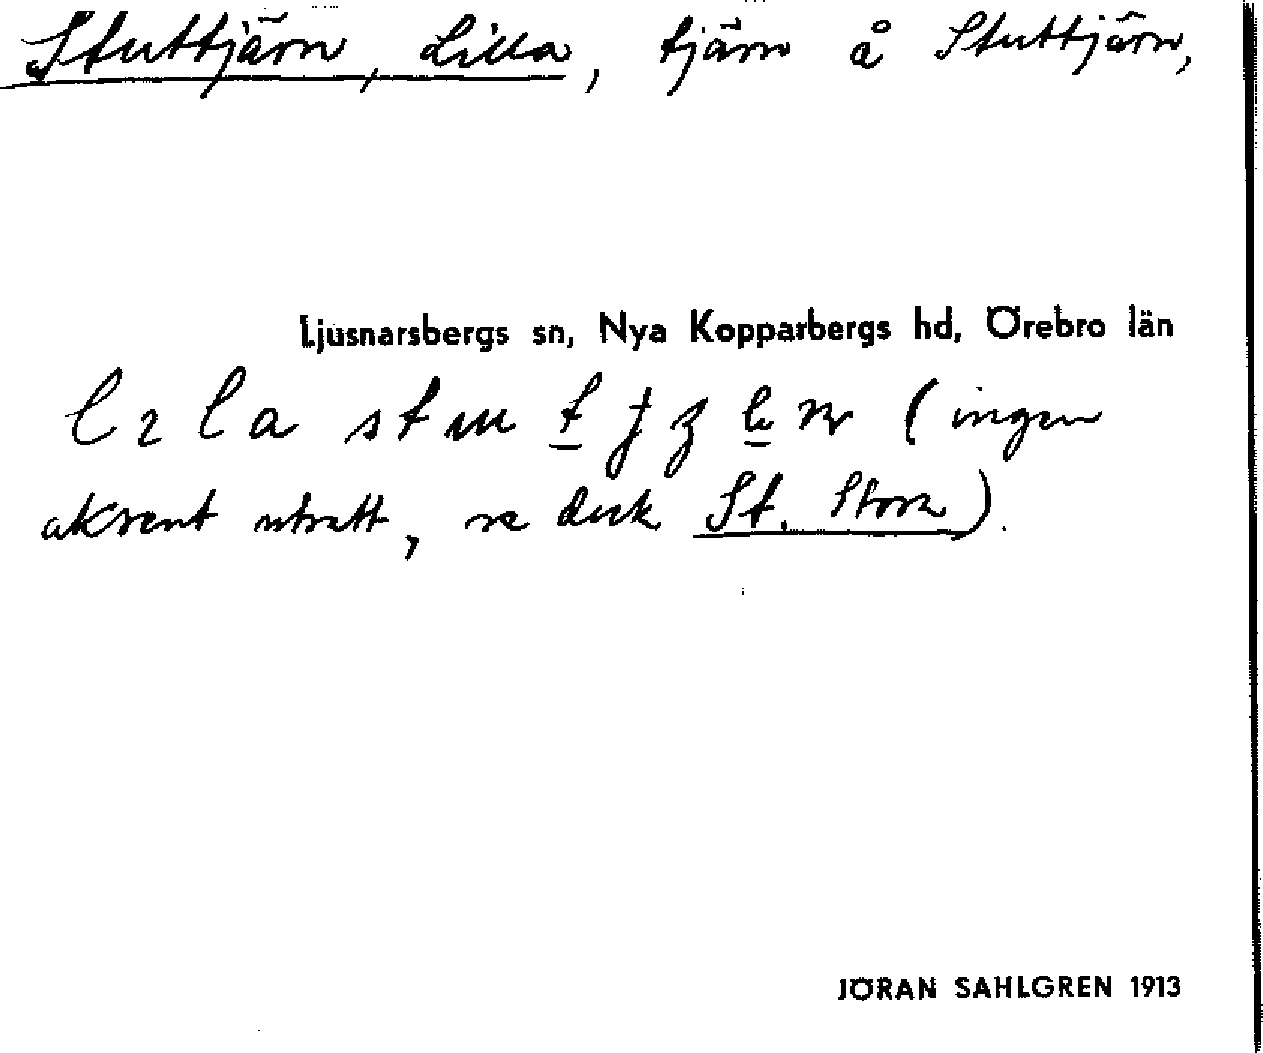 Stuttjärn, Lilla, tjärn å Stuttjärn,
Ljusnarsbergs sn, Nya Kopparbergs hd, Örebro län
(ingen
aksent utsatt, se dock St. Stora).
JÖRAN SAHLGREN 1913